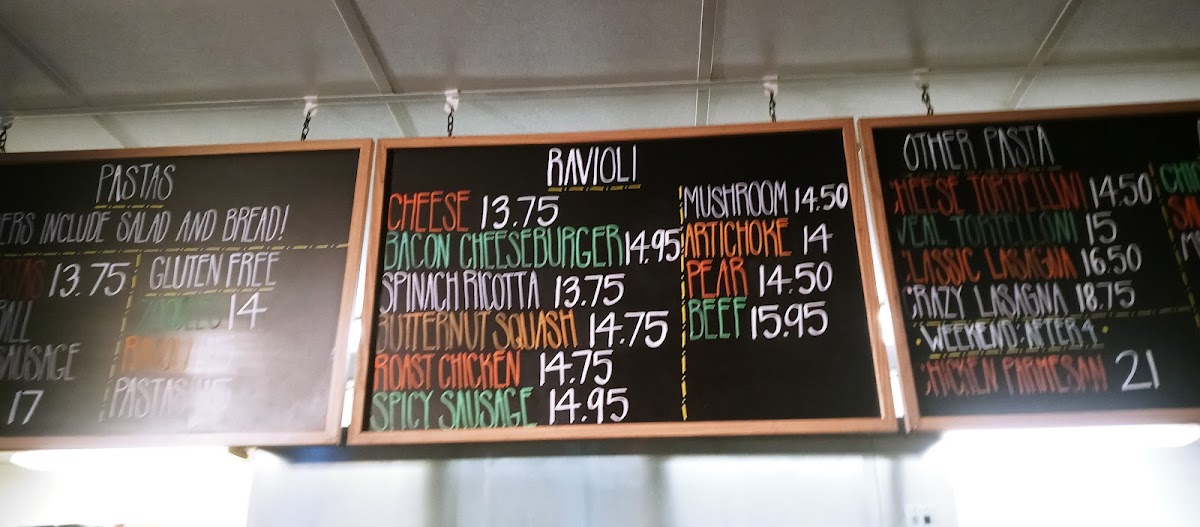 PASTAS
INCLUDE SALAD AND BREAD!
13.75
SAUSAGE
17
GLUTEN FREE
14
PASTAS
RAVIOLI
CHEESE 13.75
BACON CHEESEBURGER 14.95
SPINACH RICOTTA 13.75
BUTTERNUT SQUASH 14.75
ROAST CHICKEN 14.75
SPICY SAUSAGE 14.95
MUSHROOM 14.50
ARTICHOKE 14
PEAR 14.50
BEEF 15.95
OTHER PASTA
CHEESE TORTELLONI 14.50
VEAL TORTELLONI 15
CLASSIC LASAGNA 16.50
CRAZY LASAGNA 18.75
WEEKEND: AFTER 4
CHICKEN PARMESAN 21